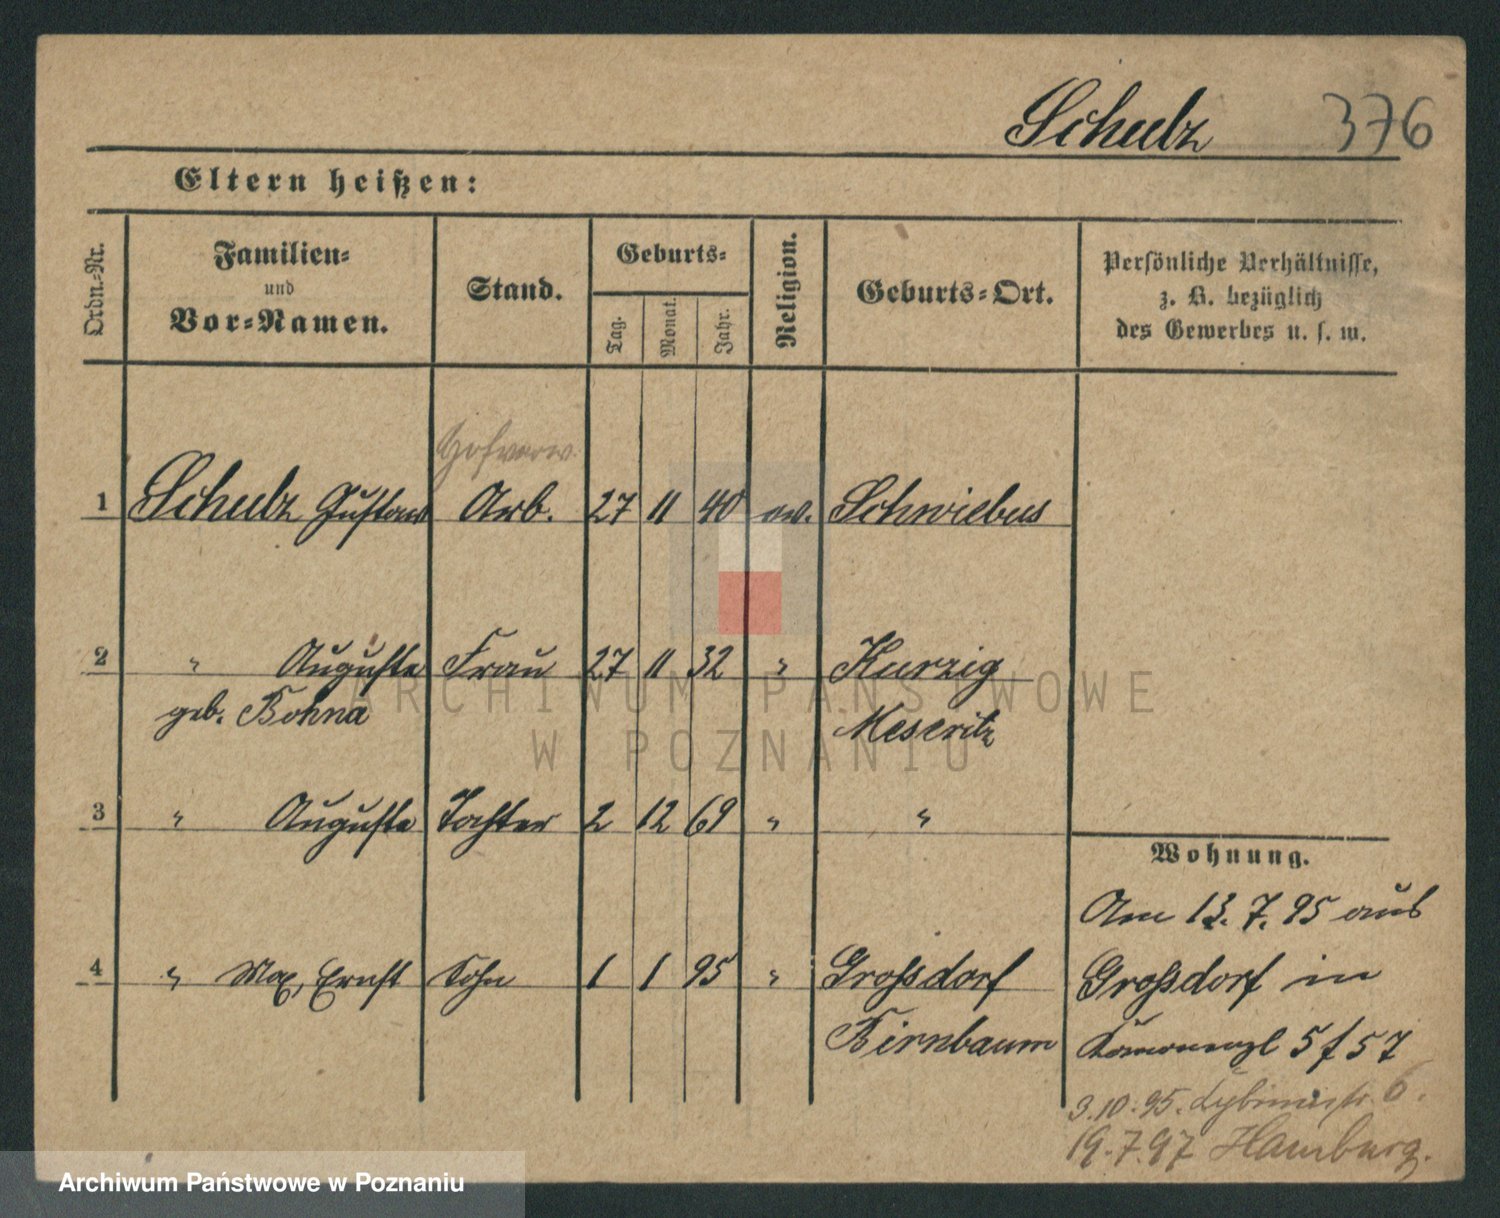 Schulz 376
Eltern heißen:
Ordn.-Nr.
Familien-
und
Vor-Namen.
Stand.
Geburts-
Tag.
Monat.
Jahr.
Religion.
Geburts-Ort.
Persönliche Verhältnisse,
z. B. bezüglich
des Gewerbes u. s. w.
Hofverw.
1 Schulz Gustav Arb. 27 11 40 ev. Schwiebus
2 " Auguste Frau 27 11 32 " Kurzig
geb. Bohna Meseritz
3 " Auguste Tochter 2 12 69 " "
4 " Max, Ernst Sohn 1 1 95 " Großdorf
Birnbaum
Wohnung.
Am 13. 7. 95 aus
Großdorf in
5 f 57
3.10.95. 6.
19.7.97 Hamburg.
ARCHIWUM PAŃSTWOWE
W POZNANIU
Archiwum Państwowe w Poznaniu